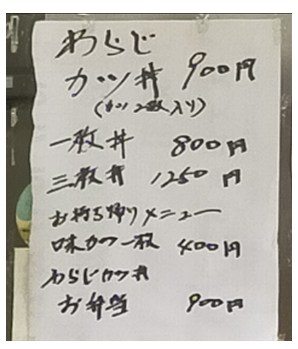 わらじ
カツ丼 900円
(カツ2枚入り)
一枚丼 800円
三枚丼 1250円
お持ち帰りメニュー
味カツ一枚 400円
わらじカツ丼
お弁当 900円